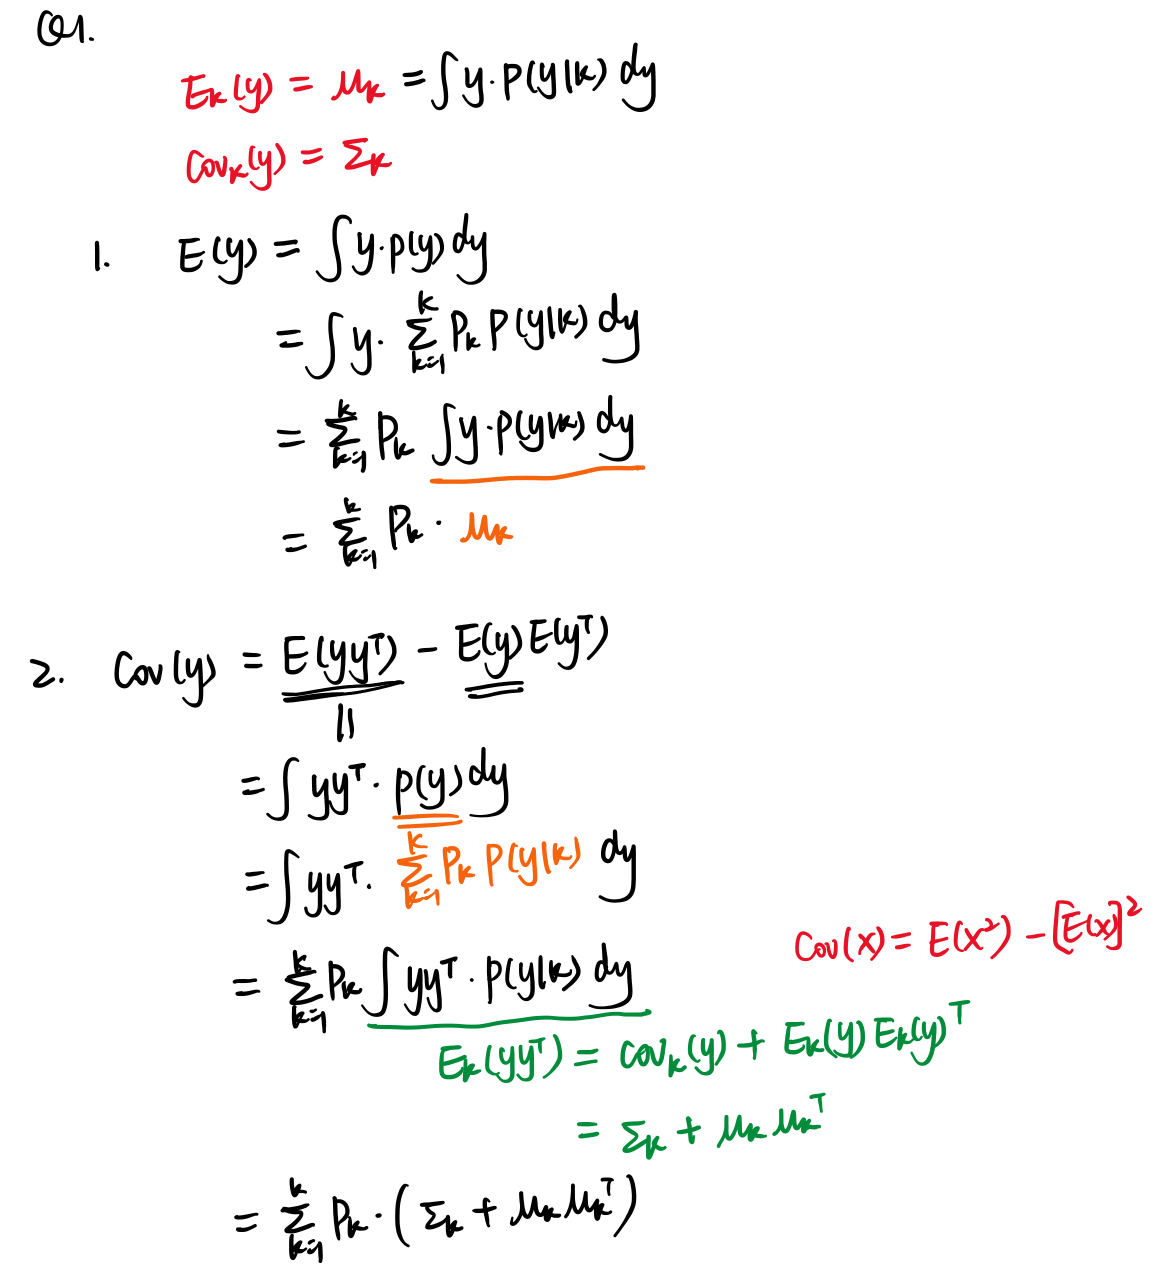 Q1.
E_k(y) = μ_k = ∫ y · p(y|k) dy
Cov_k(y) = Σ_k
1. E(y) = ∫ y · p(y) dy
= ∫ y · ∑_{k=1}^{k} P_k P(y|k) dy
= ∑_{k=1}^{k} P_k ∫ y · p(y|k) dy
= ∑_{k=1}^{k} P_k · μ_k
2. Cov(y) = E(yy^T) - E(y) E(y^T)
||
= ∫ yy^T · p(y) dy
= ∫ yy^T · ∑_{k=1}^{k} P_k P(y|k) dy
Cov(x) = E(x^2) - [E(x)]^2
= ∑_{k=1}^{k} P_k ∫ yy^T · p(y|k) dy
E_k(yy^T) = cov_k(y) + E_k(y) E_k(y)^T
= Σ_k + μ_k μ_k^T
= ∑_{k=1}^{k} P_k · (Σ_k + μ_k μ_k^T)